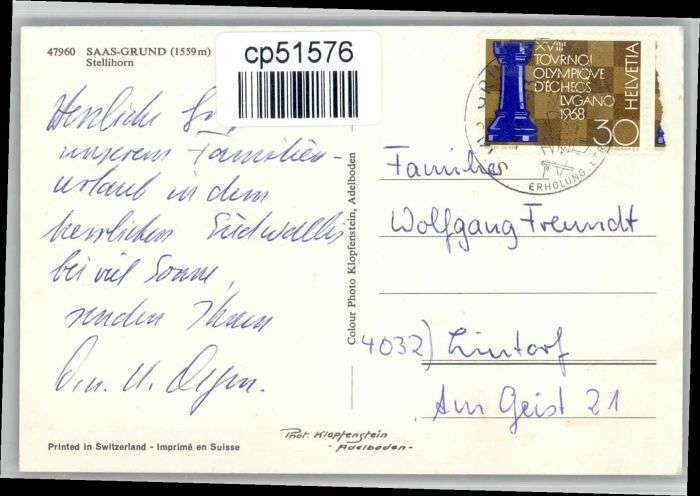 47960 SAAS-GRUND (1559 m)
Stellihorn
cp51576
XVIII
TOURNOI
OLYMPIQUE
D'ECHECS
LUGANO
1968
30
HELVETIA
ERHOLUNG
Herzliche
unserem Familien-
urlaub in dem
herrlichen Südwallis
bei viel Sonne,
senden Ihnen
Colour Photo Klopfenstein, Adelboden
Familie
Wolfgang Freundt
4032) Lintorf
Am Geist 21
Phot. Klopfenstein
- Adelboden -
Printed in Switzerland - Imprimé en Suisse